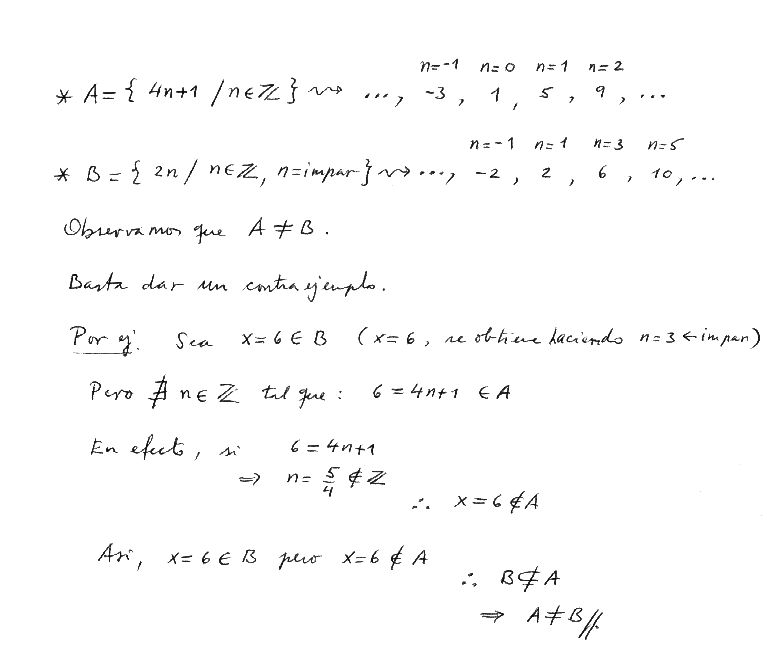 n=-1 n=0 n=1 n=2
* A = { 4n+1 / n∈ℤ } ⇝ ..., -3, 1, 5, 9, ...
n=-1 n=1 n=3 n=5
* B = { 2n / n∈ℤ, n=impar } ⇝ ..., -2, 2, 6, 10, ...
Observamos que A ≠ B.
Basta dar un contraejemplo.
Por ej: Sea x=6 ∈ B (x=6, se obtiene haciendo n=3 ← impar)
Pero ∄ n∈ℤ tal que: 6 = 4n+1 ∈ A
En efecto, si 6 = 4n+1
⇒ n = 5/4 ∉ ℤ
∴ x=6 ∉ A
Asi, x=6 ∈ B pero x=6 ∉ A
∴ B ⊄ A
⇒ A ≠ B //